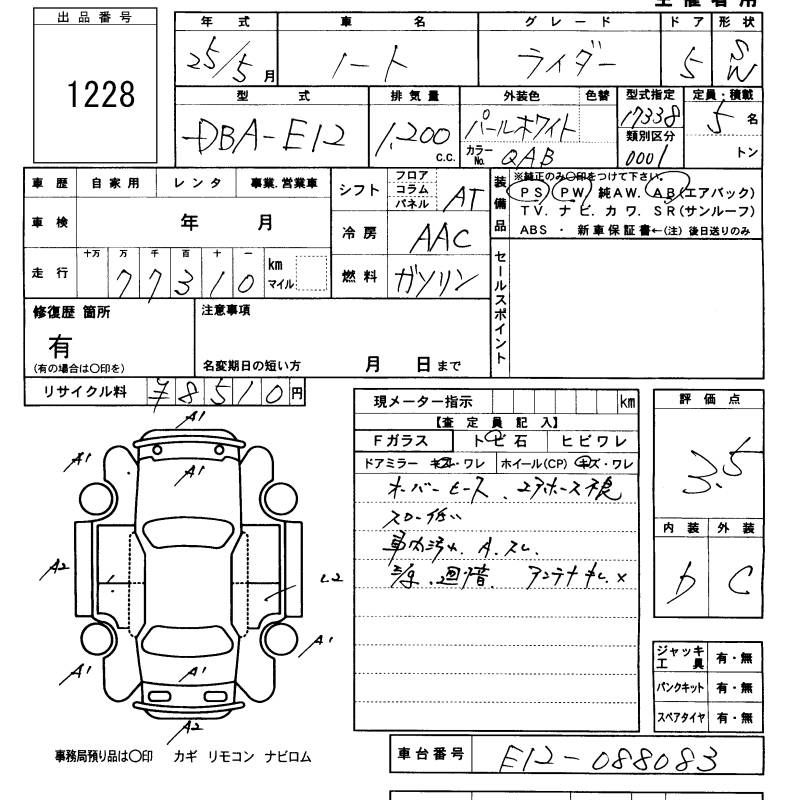 出品番号
1228
年式 車名 グレード ドア 形状
25/5月 ノート ライダー 5 SW
型式 排気量 外装色 色替 型式指定 定員・積載
DBA-E12 1,200 c.c. パールホワイト 17338 5名
カラーNo. QAB 類別区分 0001 トン
車歴 自家用 レンタ 事業.営業車
シフト フロア コラム パネル AT
装備品 ※純正のみ〇印をつけて下さい。
PS PW 純AW. AB(エアバック)
TV. ナビ. カワ. SR(サンルーフ)
ABS ・ 新車保証書←(注)後日送りのみ
車検 年 月
冷房 AAC
走行 十万 万 千 百 十 一
77310 km マイル
燃料 ガソリン
セールスポイント
修復歴 箇所
有
(有の場合は〇印を)
注意事項
名変期日の短い方 月 日まで
リサイクル料 ¥8510円
現メーター指示 km
【査定員記入】
Fガラス トビ石 ヒビワレ
ドアミラー キズ・ワレ ホイール(CP) キズ・ワレ
オーバーヒース、エアホース不良
スロー低い
車内汚れ、A、スレ、
アンテナ
評価点
3.5
内装 外装
D C
A1
A1 A1 A1
A2 L2
A1 A1 A1
A2
ジャッキ工具 有・無
パンクキット 有・無
スペアタイヤ 有・無
事務局預り品は〇印 カギ リモコン ナビロム
車台番号 E12-088083